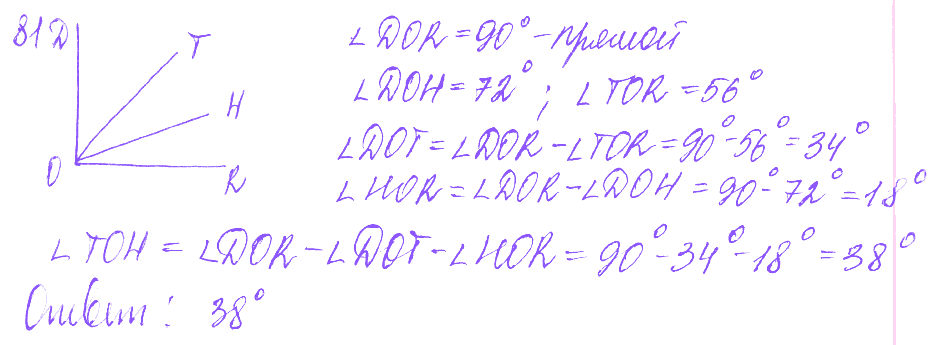 81 D
T
H
O
R
∠DOR = 90° - прямой
∠DOH = 72° ; ∠TOR = 56°
∠DOT = ∠DOR - ∠TOR = 90° - 56° = 34°
∠HOR = ∠DOR - ∠DOH = 90° - 72° = 18°
∠TOH = ∠DOR - ∠DOT - ∠HOR = 90° - 34° - 18° = 38°
Ответ: 38°